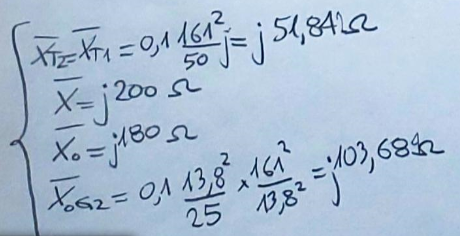 X̅T2=X̅T1 = 0,1 161²/50 j = j 51,842Ω
X̅ = j200 Ω
X̅o = j180 Ω
X̅oG2 = 0,1 13,8²/25 × 161²/13,8² = j103,684Ω